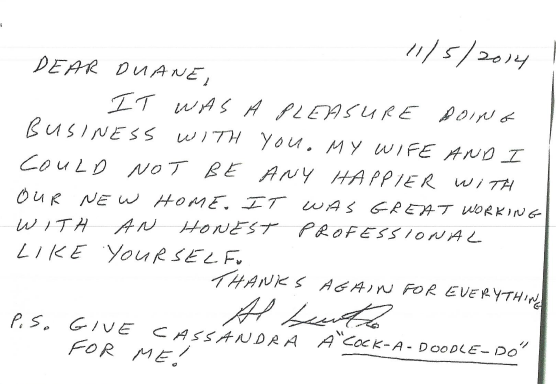 11/5/2014
DEAR DUANE,
IT WAS A PLEASURE DOING
BUSINESS WITH YOU. MY WIFE AND I
COULD NOT BE ANY HAPPIER WITH
OUR NEW HOME. IT WAS GREAT WORKING
WITH AN HONEST PROFESSIONAL
LIKE YOURSELF.
THANKS AGAIN FOR EVERYTHING
Al
P.S. GIVE CASSANDRA A "COCK-A-DOODLE-DO"
FOR ME!